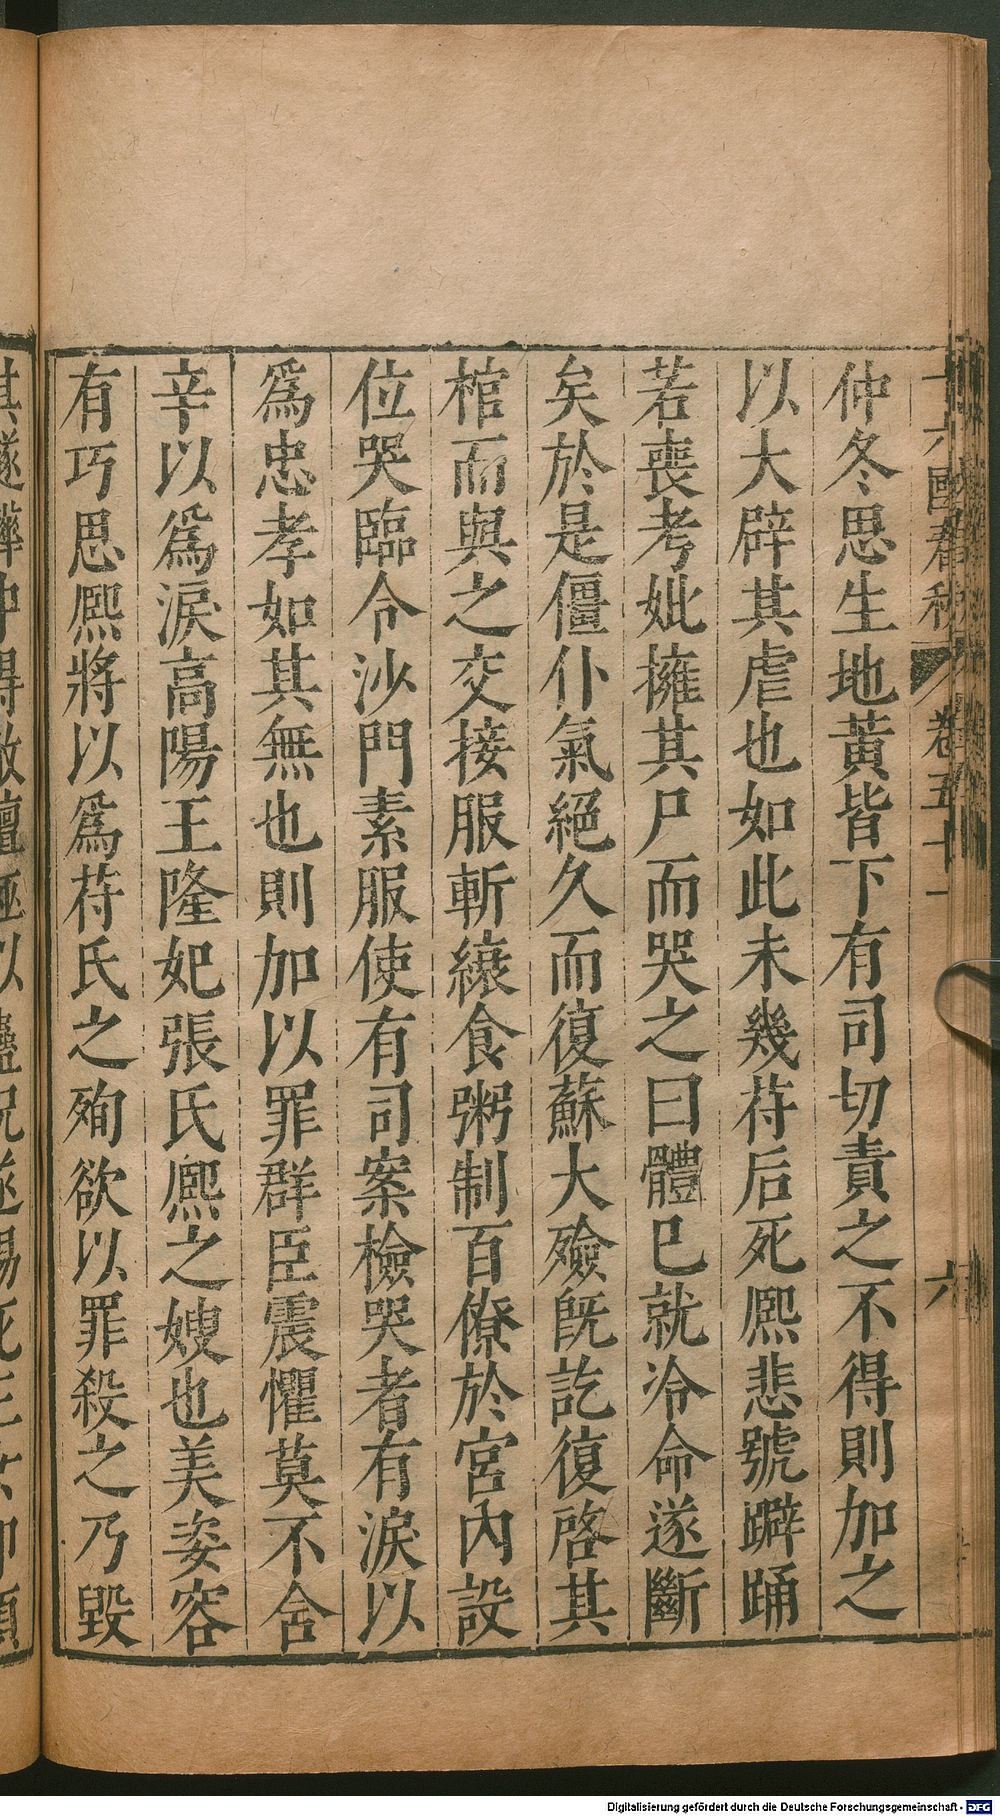 十六國春秋 卷五十一 六
仲冬思生地黃皆下有司切責之不得則加之
以大辟其虐也如此未幾苻后死熙悲號躃踊
若喪考妣擁其尸而哭之曰體已就冷命遂斷
矣於是僵仆氣絕久而復蘇大殮旣訖復啓其
棺而與之交接服斬縗食粥制百僚於宮內設
位哭臨令沙門素服使有司案檢哭者有淚以
爲忠孝如其無也則加以罪群臣震懼莫不舍
辛以爲淚高陽王隆妃張氏熙之嫂也美姿容
有巧思熙將以爲苻氏之殉欲以罪殺之乃毀
Digitalisierung gefördert durch die Deutsche Forschungsgemeinschaft - DFG